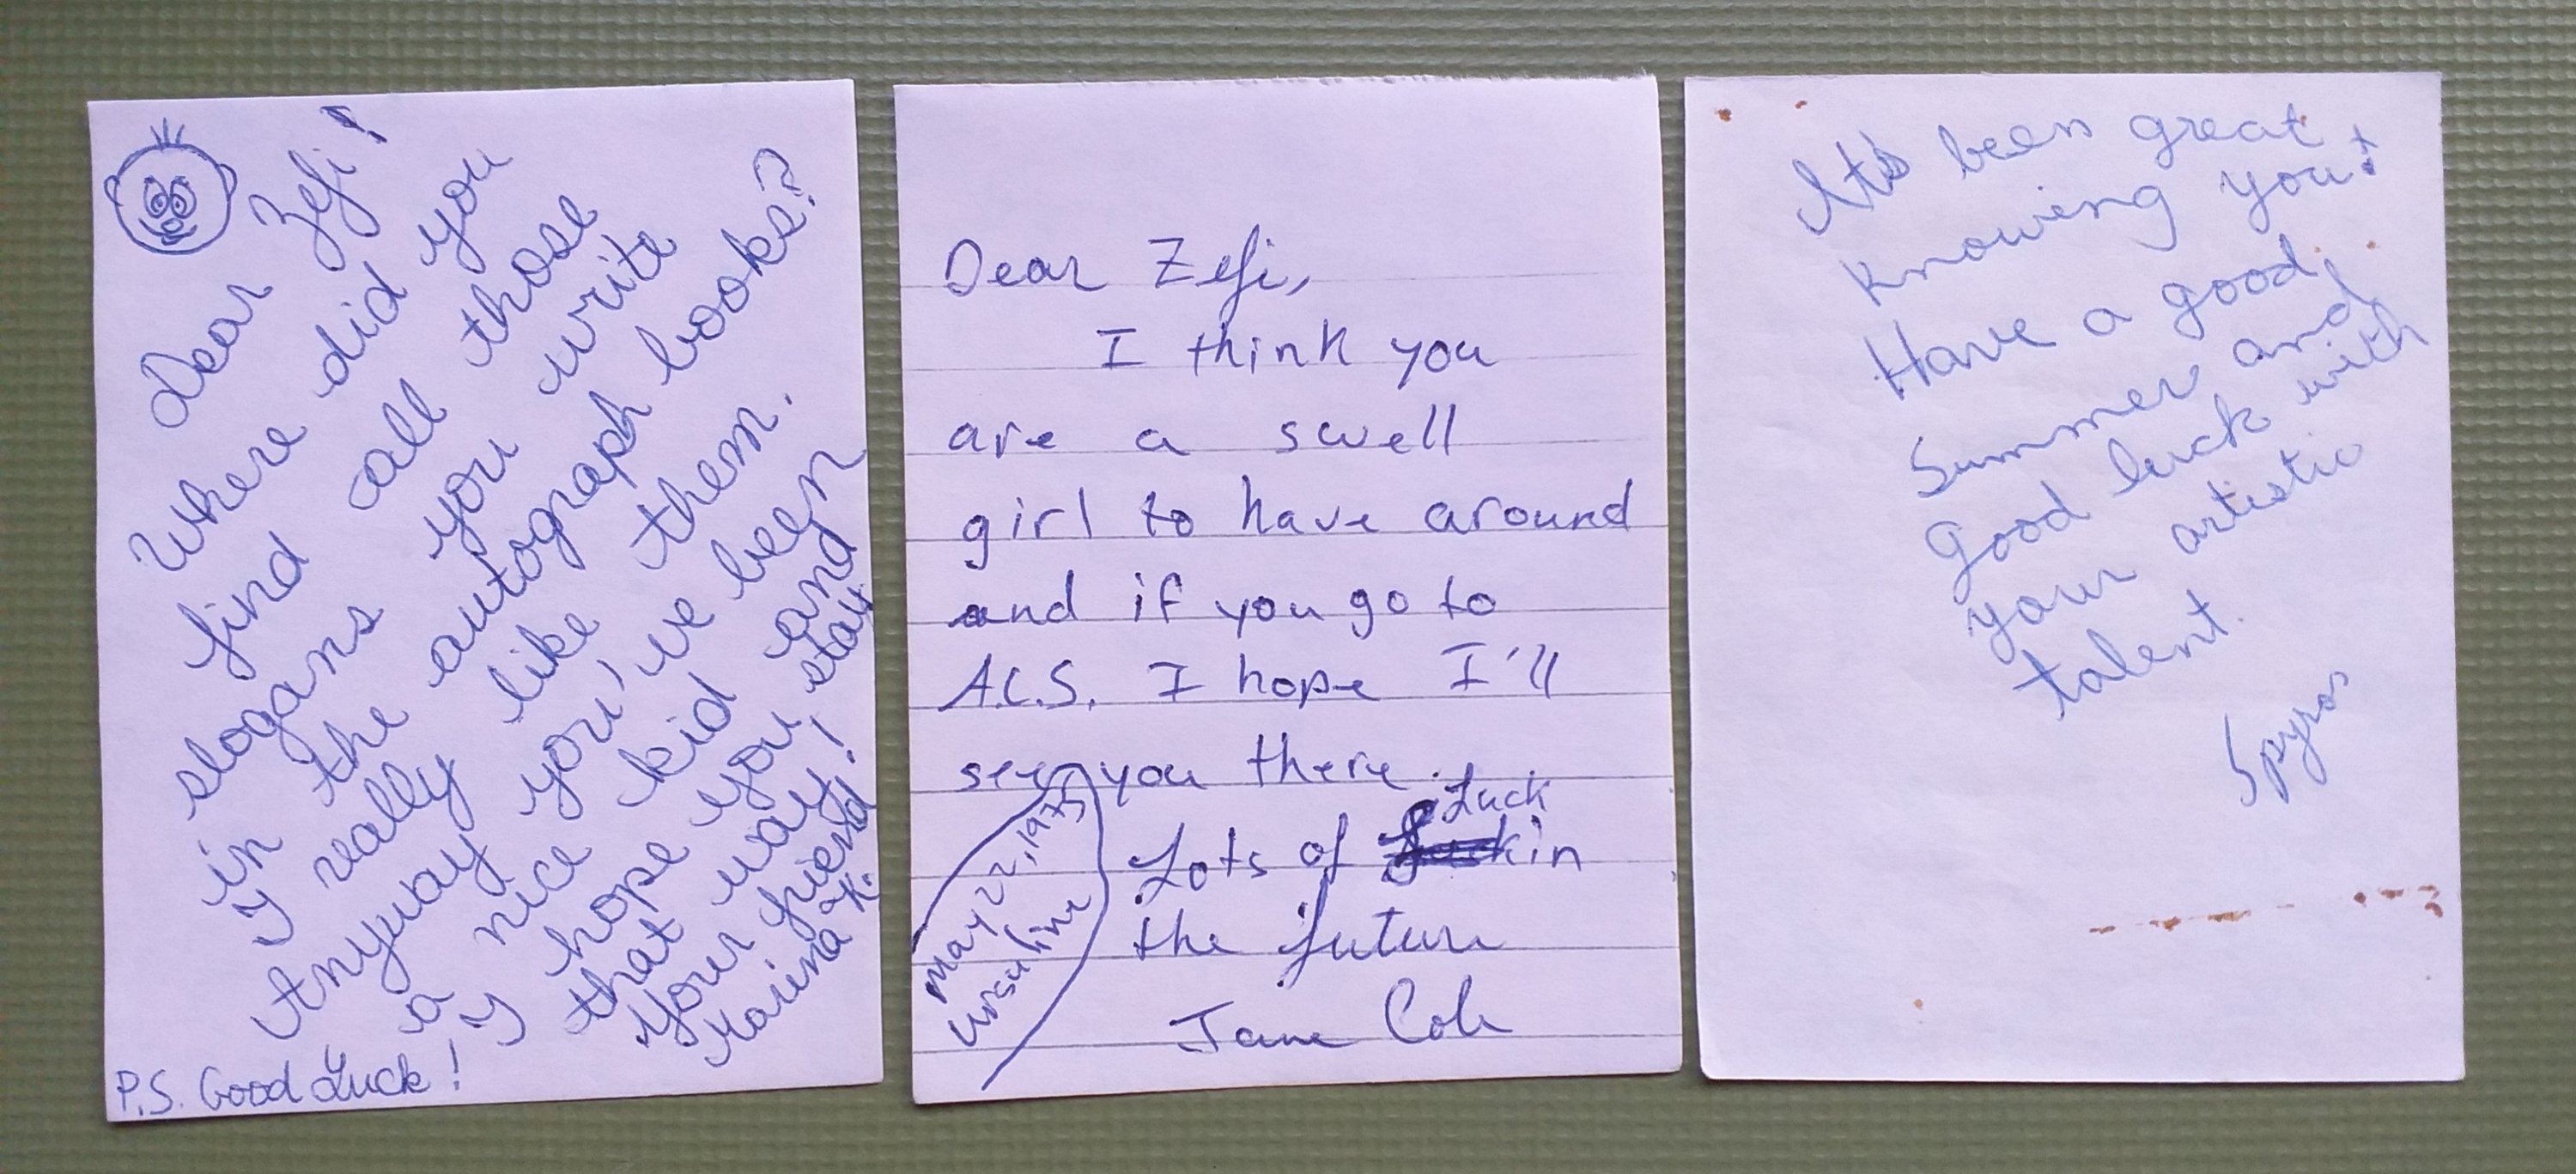 Dear Zefi!
Where did you
find all those
slogans you write
in the autograph books?
I really like them.
Anyway you've been
a nice kid and
I hope you stay
that way!
Your friend,
Marina K.
P.S. Good Luck!
Dear Zefi,
I think you
are a swell
girl to have around
and if you go to
A.C.S. I hope I'll
see you there.
Lots of Luck in
the future
Jane Cole
May 22, 1975
Ursuline
It's been great
knowing you!
Have a good
Summer and
good luck with
your artistic
talent.
Spyros